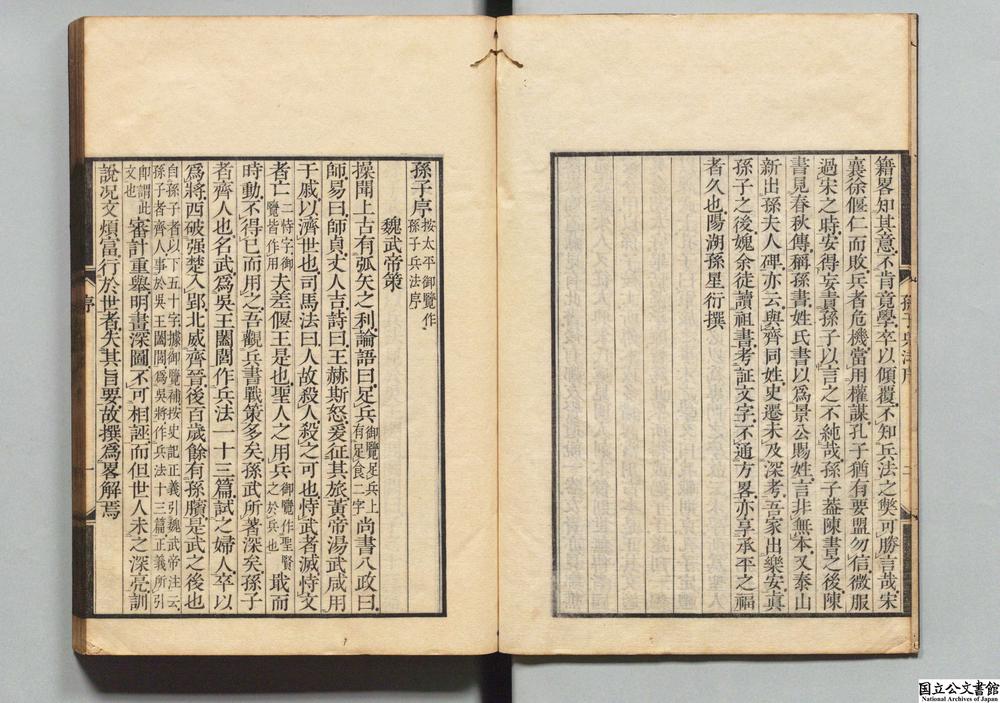 籍畧知其意不肯竟學卒以傾覆不知兵法之獘可勝言哉宋
襄徐偃仁而敗兵者危機當用權謀孔子猶有要盟勿信微服
過宋之時安得妄責孫子以言之不純哉孫子蓋陳書之後陳
書見春秋傳稱孫書姓氏書以爲景公賜姓言非無本又泰山
新出孫夫人碑亦云與齊同姓史遷未及深考吾家出樂安眞
孫子之後媿余徒讀祖書考証文字不通方畧亦享承平之福
者久也陽湖孫星衍撰
孫子序
按太平御覽作
孫子兵法序
魏武帝策
操聞上古有弧矢之利論語曰足兵御覽足兵上有足食二字尚書八政曰
師易曰師貞丈人吉詩曰王赫斯怒爰征其旅黃帝湯武咸用
干戚以濟世也司馬法曰人故殺人殺之可也恃武者滅恃文
者亡二恃字御覽皆作用夫差偃王是也聖人之用兵御覽作聖賢之於兵也戢而
時動不得已而用之吾觀兵書戰策多矣孫武所著深矣孫子
者齊人也名武爲吳王闔閭作兵法一十三篇試之婦人卒以
爲將西破强楚入郢北威齊晉後百歲餘有孫臏是武之後也
自孫子者以下五十字據御覽補按史記正義引魏武帝注云
孫子者齊人事於吳王闔閭爲吳將作兵法十三篇正義所引
卽謂此文也審計重舉明畫深圖不可相誣而但世人未之深亮訓
說况文煩富行於世者失其旨要故撰爲畧解焉
序
一
国立公文書館
National Archives of Japan